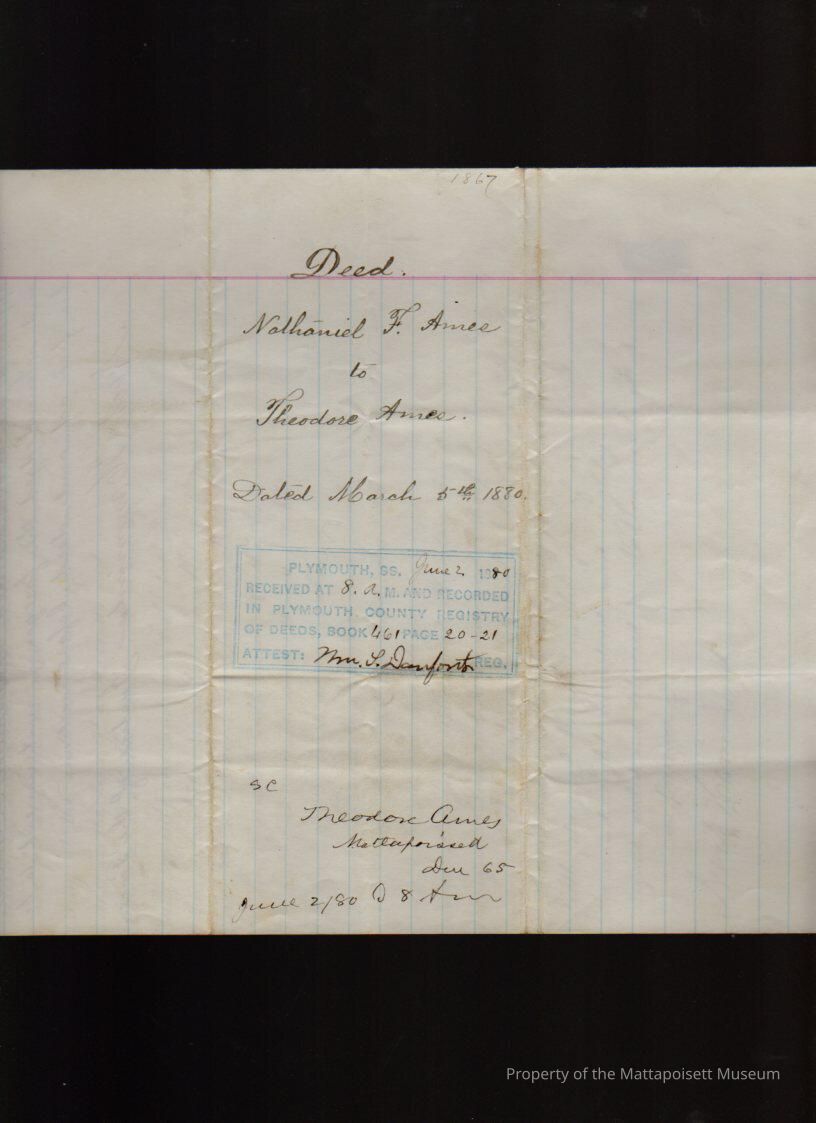 1867
Deed.
Nathaniel F. Ames
to
Theodore Ames.
Dated March 5th 1880.
PLYMOUTH, SS. June 2 1880
RECEIVED AT 8. A. M. AND RECORDED
IN PLYMOUTH COUNTY REGISTRY
OF DEEDS, BOOK 461 PAGE 20-21
ATTEST: Wm. S. Danforth REG.
Theodore Ames
Mattapoisett
65
June 2/80 8 Am
Property of the Mattapoisett Museum